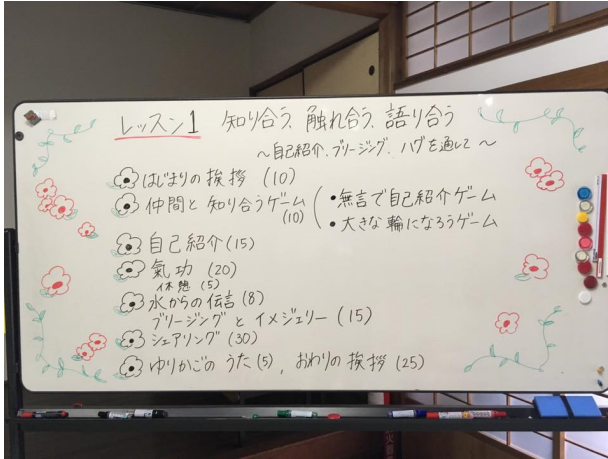 レッスン1 知り合う、触れ合う、語り合う
〜自己紹介、ブリージング、ハグを通して〜
はじまりの挨拶 (10)
仲間と知り合うゲーム (10)
・無言で自己紹介ゲーム
・大きな輪になろうゲーム
自己紹介 (15)
氣功 (20)
休憩 (5)
水からの伝言 (8)
ブリージングとイメジェリー (15)
シェアリング (30)
ゆりかごのうた (5)、おわりの挨拶 (25)